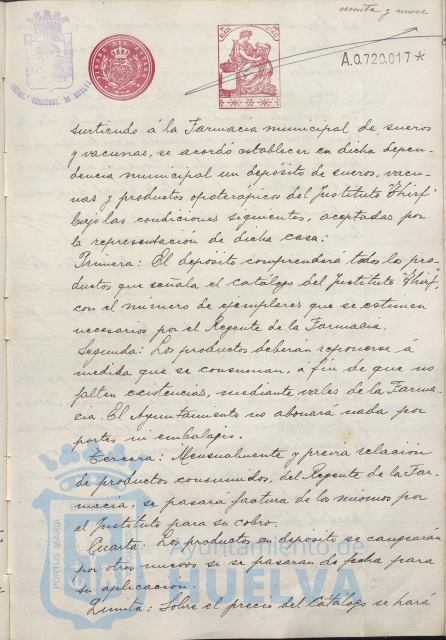 sesenta y nueve
A.0.720.017*
TIMBRE DEL ESTADO
surtiendo á la Farmacia municipal de sueros
y vacunas, se acordó establecer en dicha depen-
dencia municipal un depósito de sueros, vacu-
nas y productos opoterápicos del Instituto "Thirf"
bajo las condiciones siguientes, aceptadas por
la representación de dicha casa:
Primera: El depósito comprenderá todos los pro-
ductos que señala el catálogo del Instituto "Thirf",
con el número de ejemplares que se estimen
necesarios por el Regente de la Farmacia.
Segunda: Los productos deberán reponerse á
medida que se consuman, a fin de que no
falten existencias, mediante vales de la Farma-
cia. El Ayuntamiento no abonará nada por
portes ni embalajes.
Tercera: Mensualmente y previa relación
de productos consumidos, del Regente de la Far-
macia, se pasará factura de los mismos por
el Instituto para su cobro.
Cuarta: Los productos en depósito se canjearan
por otros nuevos si se pasaran de fecha para
su aplicación.
Quinta: Sobre el precio del Catálogo se hará
PORTUS MARIS
Ayuntamiento de
HUELVA